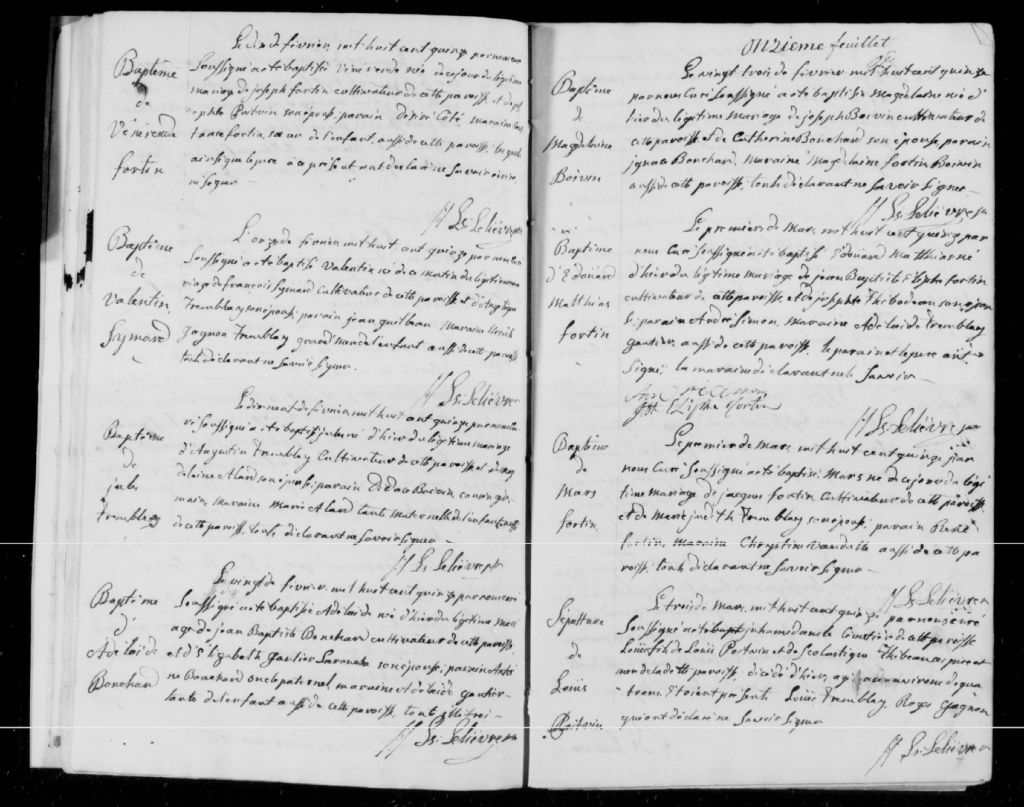 Baptême
de
Vénérende
fortin
Le dix de février, mil huit cent quinze par nous curé
soussigné a été baptisée Vénérende née de ce jour du légitime
mariage de joseph fortin cultivateur de cette paroisse et de jose
ephte Poitvin son épouse, parain désiré Coté maraine
fortin, sœur de l'enfant, aussi de cette paroisse, lesquels
ainsi que le père à ce présent ont déclaré ne savoir écrire
ni signer
Ls. Lelièvre ptre
Baptême
de
Valentin
Symard
L'onze de février mil huit cent quinze par nous curé
soussigné a été baptisé Valentin né de ce matin du légitime ma
riage de françois Symard cultivateur de cette paroisse et d'Angelique
Tremblay son épouse; parain jean guilbeau Maraine
gagnon Tremblay grand mère de l'enfant aussi de cette paroisse
touts déclarant ne savoir signer.
Ls. Lelièvre
Baptême
de
jules
Tremblay
Le dix neuf de février mil huit cent quinze par nous cu
ré soussigné a été baptisé jules né d'hier du légitime mariage
d'Augustin Tremblay cultivateur de cette paroisse et de Mag
delaine Alard son épouse; parain Boivin cousin ger
main, maraine Marie Alard tante maternelle de l'enfant aussi
de cette paroisse, touts déclarant ne savoir signer
Ls. Lelièvre ptre
Baptême
d'
Adélaide
Bouchard
Le vingt de février mil huit cent quinze par nous curé
soussigné a été baptisée Adelaide née d'hier du légitime mari
age de jean Baptiste Bouchard cultivateur de cette paroisse,
et d'Elizabeth gautier Larouche son épouse, parain Antoi
ne Bouchard oncle paternel, maraine Adélaide gautier
tante de l'enfant aussi de cette paroisse,
Ls. Lelièvre ptre
Onzieme feuillet
Baptême
de
Magdelaine
Boivin
Le vingt trois de février mil huit cent quinze
par nous Curé soussigné a été baptisée Magdelaine née d'
hier du légitime mariage de joseph Boivin cultivateur de
cette paroisse et de Catherine Bouchard son épouse, parain
ignace Bouchard, Maraine Magdelaine fortin Boivin
aussi de cette paroisse, touts déclarant ne savoir signer
Ls. Lelièvre ptre
Baptême
d'Edouard
Matthias
fortin
Le premier de Mars, mil huit cent quinze par
nous Curé soussigné a été baptisé Edouard Matthias né
d'hier du légitime mariage de jean Baptiste Elzéphe fortin
cultivateur de cette paroisse, et de josephte Thibodeau son épou
se; parain André Simon, Maraine Adélaide Tremblay
gautier, aussi de cette paroisse, le parain et le père ont
signé, la maraine déclarant ne le savoir
André Simon
Ls. Lelièvre ptre
Baptême
de
Mars
fortin
Le premier de Mars, mil huit cent quinze par
nous Curé soussigné a été baptisé Mars né de ce jour du légi
time mariage de jacques fortin, cultivateur de cette paroisse,
et de Marie judith Tremblay son épouse; parain René
fortin, Maraine Chrystine Vandalle aussi de cette pa
roisse, touts déclarant ne savoir signer
Ls. Lelièvre
Sépulture
de
Loüis
Poitvin
Le trois de Mars, mil huit cent quinze par nous curé
soussigné a été inhumé dans le cimetière de cette paroisse
Loüis fils de Loüis Poitvin et de Scolastique Thibeau, père et
mère de la dite paroisse, décédé d'hier, agé environ de qua
tre ans. Etoient présents Loüis Tremblay, Roger Gagnon
qui ont déclaré ne savoir signer
Ls. Lelièvre